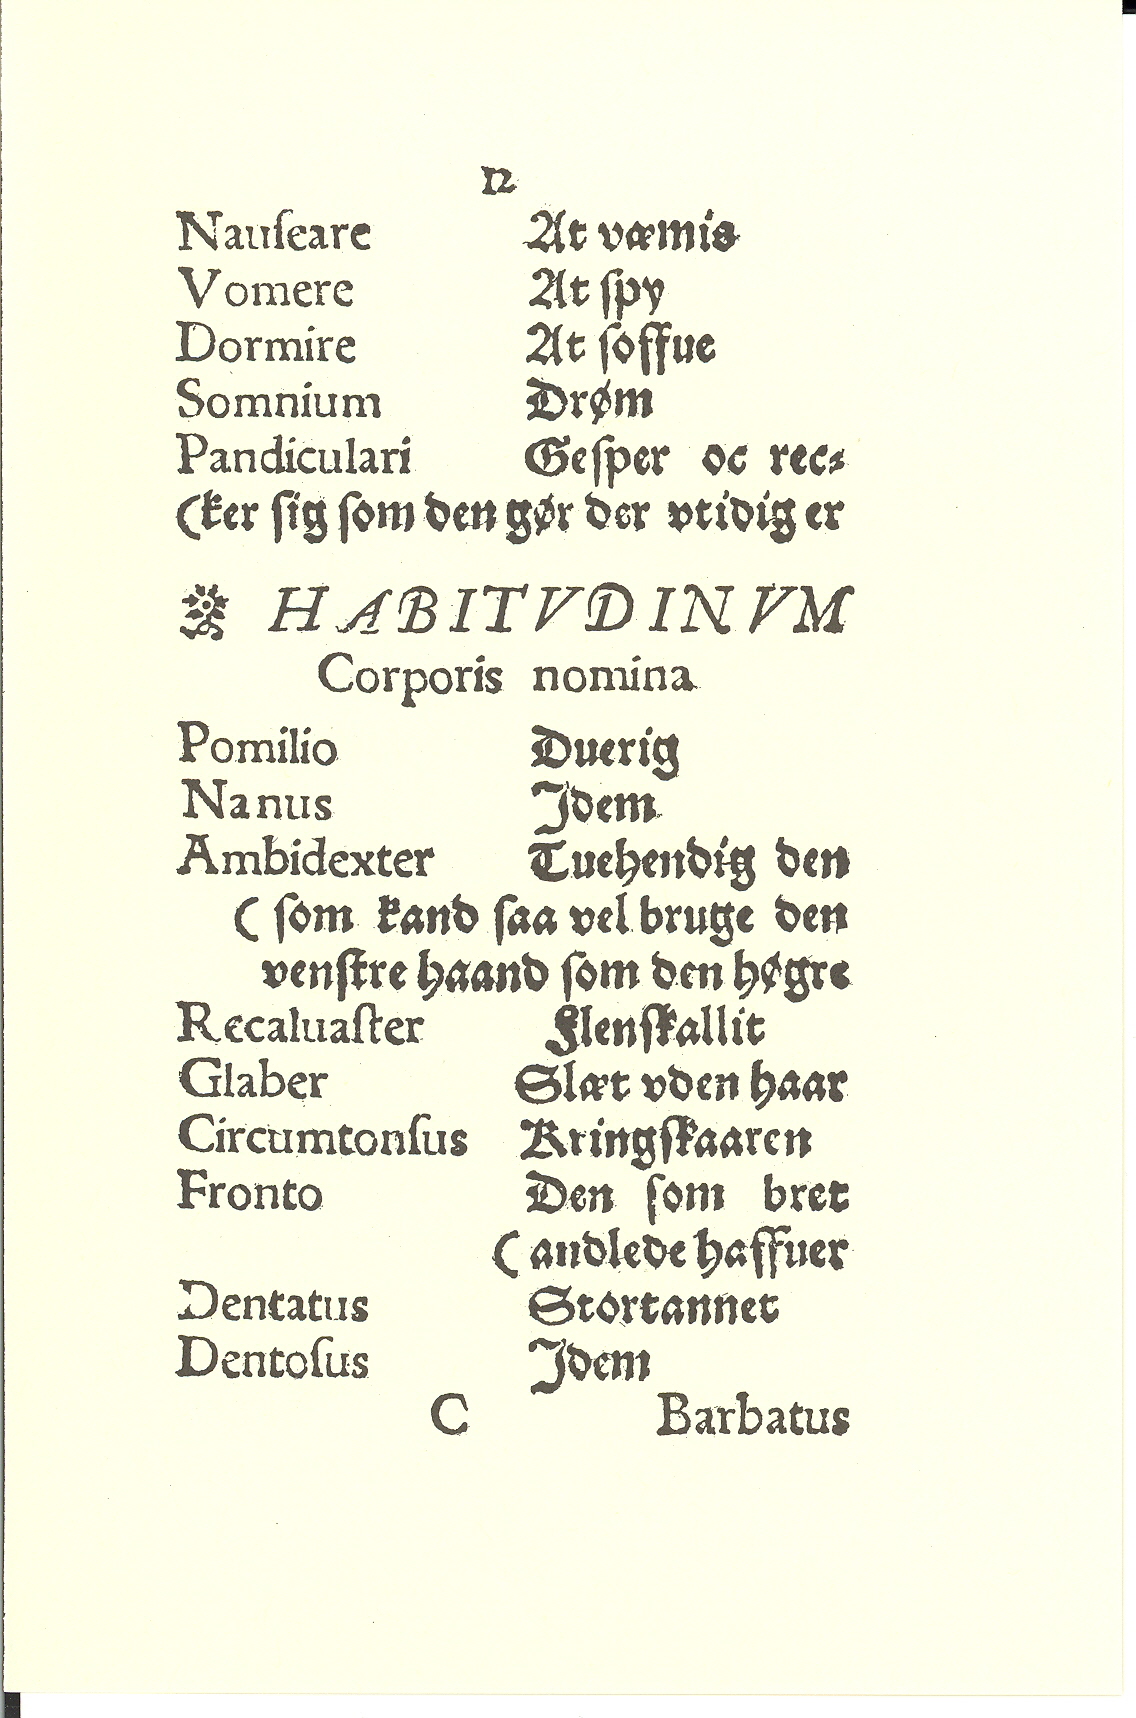 12
Nauſeare At væmis
Vomere At ſpy
Dormire At ſoffue
Somnium Drøm
Pandiculari Geſper oc rec⸗
(ker ſig ſom den gør der vtidig er
HABITVDINVM
Corporis nomina
Pomilio Duerig
Nanus Jdem
Ambidexter Tuehendig den
( ſom kand ſaa vel bruge den
venſtre haand ſom den høgre
Recaluaſter Flenſkallit
Glaber Slæt vden haar
Circumtonſus Kringſkaaren
Fronto Den ſom bret
( andlede haffuer
Dentatus Stortannet
Dentoſus Jdem
C Barbatus